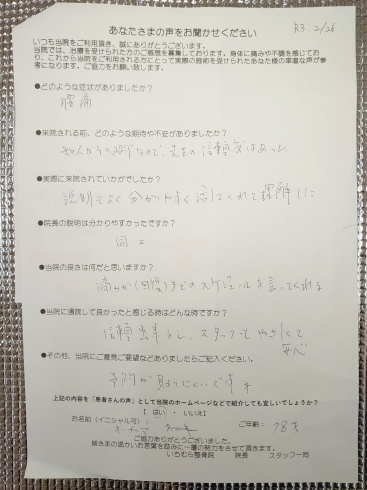 R3. 2/26
あなたさまの声をお聞かせください
いつも当院をご利用頂き、誠にありがとうございます。
当院では、治療を受けられた方のご感想を募集しております。身体に痛みや不調を感じてお
り、これから当院をご利用される方にとって実際の施術を受けられたあなた様の率直な声が参
考になります。ご協力をお願い致します。
●どのような症状がありましたか?
腰痛
●来院される前、どのような期待や不安がありましたか?
知人からの紹介なので、先生の信頼度はあった
●実際に来院されていかがでしたか?
説明もよく分かりやすく話してくれて理解した
●院長の説明は分かりやすかったですか?
同上
●当院の良さは何だと思いますか?
痛みが(回復)までのスケジュールを言ってくれる
●当院に通院して良かったと感じる時はどんな時ですか?
信頼出来るし、スタッフもやさしくて
安心
●その他、当院にご意見ご要望などありましたらご記入ください。
予約が取りにくいです
上記の内容を「患者さんの声」として当院のホームページなどで紹介しても宜しいでしょうか?
【 はい ・ いいえ】
お名前(イニシャル可):
ご年齢: 78才
ご協力ありがとうございました。
皆さまの温かいお言葉を励みに一層の努力をさせて頂きます。
いちむら整骨院 院長 スタッフ一同